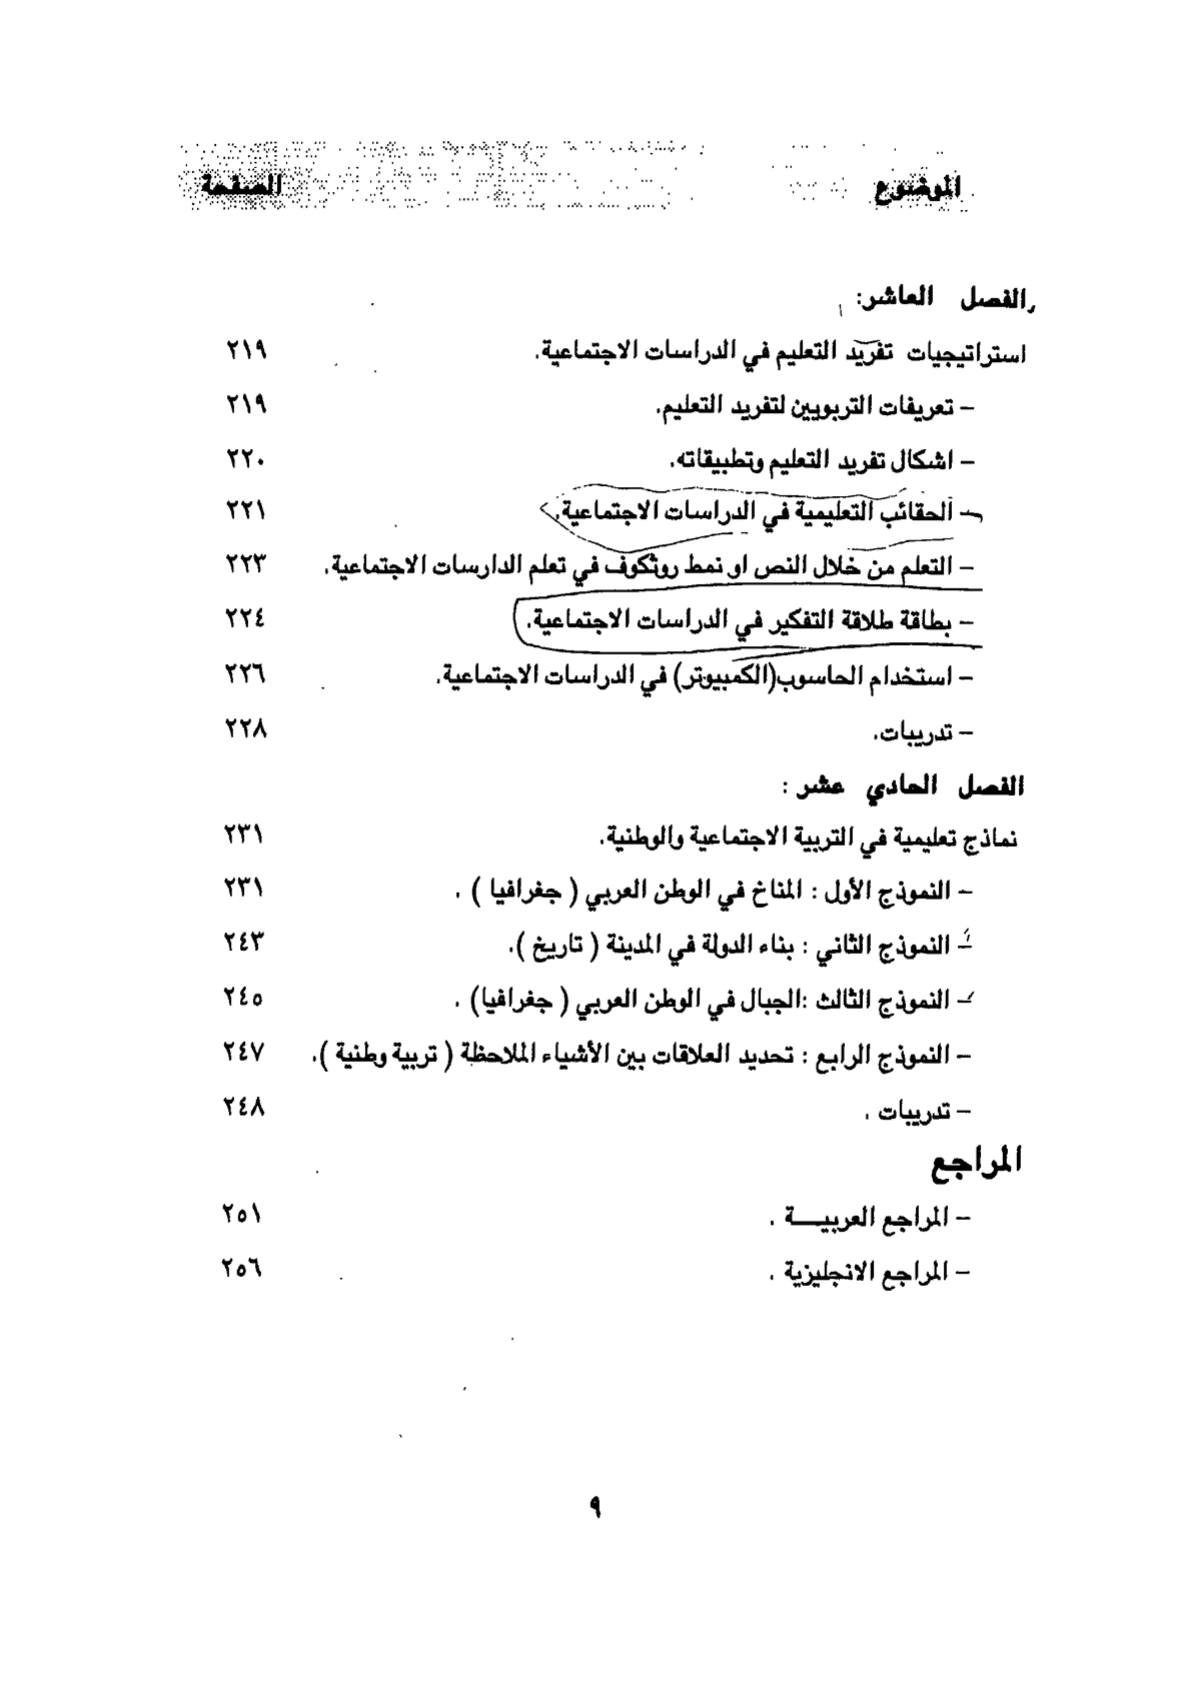 الموضوع الصفحة
الفصل العاشر:
استراتيجيات تفريد التعليم في الدراسات الاجتماعية. ٢١٩
– تعريفات التربويين لتفريد التعليم. ٢١٩
– اشكال تفريد التعليم وتطبيقاته. ٢٢٠
– الحقائب التعليمية في الدراسات الاجتماعية. ٢٢١
– التعلم من خلال النص او نمط روثكوف في تعلم الدارسات الاجتماعية. ٢٢٣
– بطاقة طلاقة التفكير في الدراسات الاجتماعية. ٢٢٤
– استخدام الحاسوب(الكمبيوتر) في الدراسات الاجتماعية. ٢٢٦
– تدريبات. ٢٢٨
الفصل الحادي عشر :
نماذج تعليمية في التربية الاجتماعية والوطنية. ٢٣١
– النموذج الأول : المناخ في الوطن العربي ( جغرافيا ) . ٢٣١
– النموذج الثاني : بناء الدولة في المدينة ( تاريخ ). ٢٤٣
– النموذج الثالث :الجبال في الوطن العربي ( جغرافيا) . ٢٤٥
– النموذج الرابع : تحديد العلاقات بين الأشياء الملاحظة ( تربية وطنية ). ٢٤٧
– تدريبات . ٢٤٨
المراجع
– المراجع العربيـــة . ٢٥١
– المراجع الانجليزية . ٢٥٦
٩